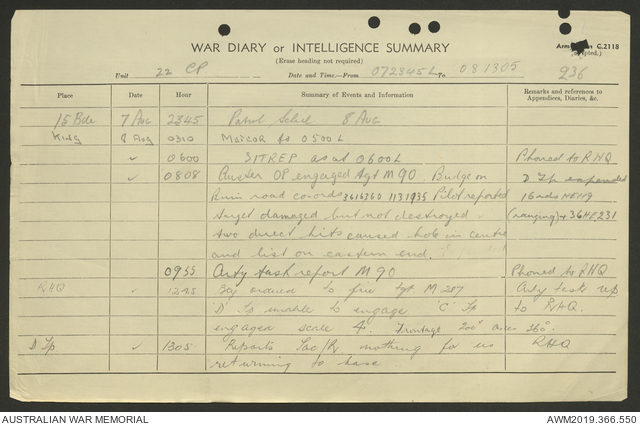 WAR DIARY or INTELLIGENCE SUMMARY
(Erase heading not required)
Army Form C.2118
Unit 22 CP Date and Time—From 072345L To 081305 236
Place Date Hour Summary of Events and Information Remarks and references to Appendices, Diaries, &c.
15 Bde 7 Aug 2345 Patrol Sched 8 Aug
8 Aug 0310 Meteor to 0500L
✓ 0600 SITREP as at 0600L Phoned to RHQ
✓ 0808 Auster OP engaged tgt M90. Bridge on D Tp expended
road co-ords 3616360 1131935 Pilot reported HE119
target damaged but not destroyed. (ranging) + 36HE231
two direct hits caused hole in centre
and list on eastern end.
0955 Arty task report M90 Phoned to RHQ
RHQ 1245 Bty ordered to fire tgt M 287 Arty task rep
'D' Tp unable to engage 'C' Tp to RHQ.
engaged scale 4. Frontage 200° 260°.
D Tp ✓ 1305 Reports Tac/R nothing for us RHQ
returning to base
AUSTRALIAN WAR MEMORIAL AWM2019.366.550